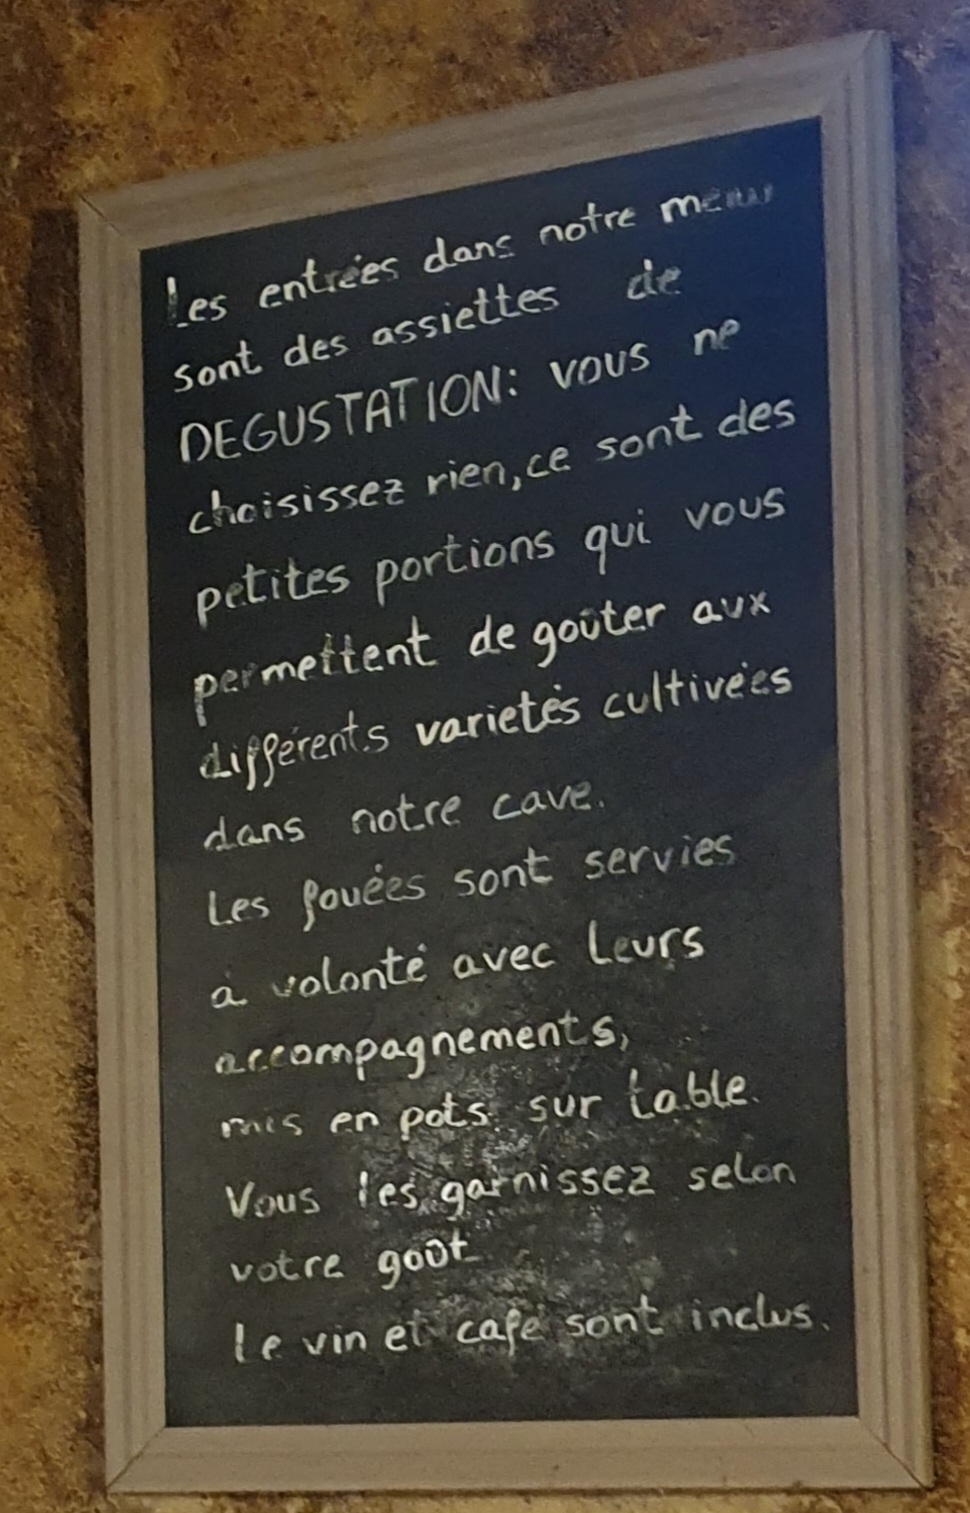 Les entrées dans notre menu
sont des assiettes de
DEGUSTATION: vous ne
choisissez rien, ce sont des
petites portions qui vous
permettent de goûter aux
différents varietés cultivées
dans notre cave.
Les fouées sont servies
à volonté avec leurs
accompagnements,
mis en pots sur table.
Vous les garnissez selon
votre goût
Le vin et café sont inclus.